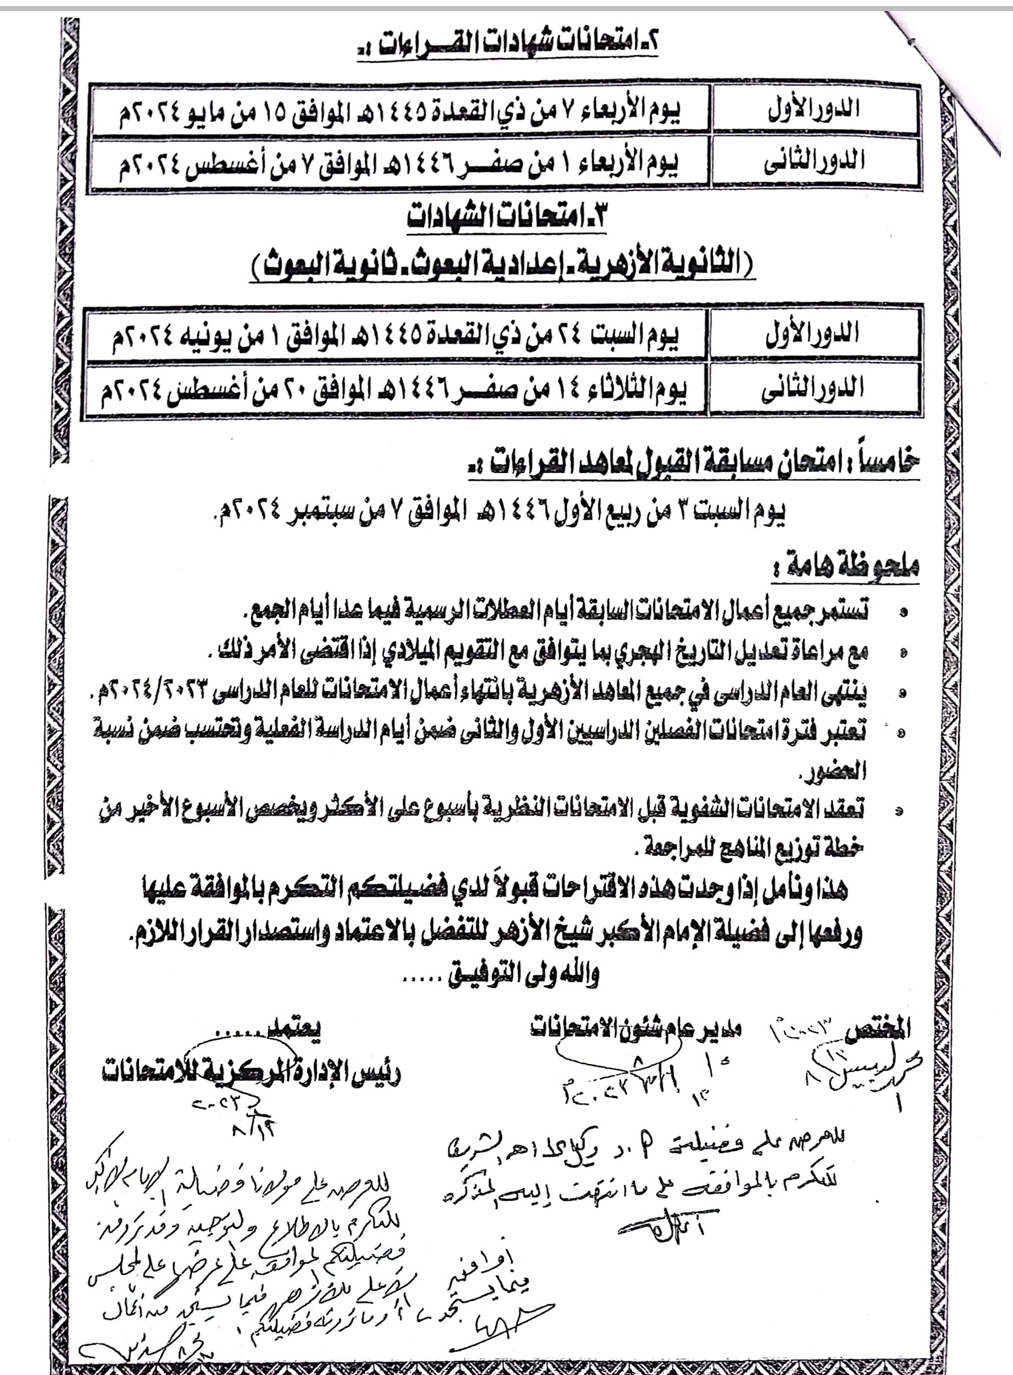 ٢ـ امتحانات شهادات القـــراءات :ـ
الدور الأول يوم الأربعاء ٧ من ذي القعدة ١٤٤٥هـ الموافق ١٥ من مايو ٢٠٢٤م
الدور الثانى يوم الأربعاء ١ من صفـــر ١٤٤٦هـ الموافق ٧ من أغسطس ٢٠٢٤م
٣ـ امتحانات الشهادات
(الثانوية الأزهرية ـ إعدادية البعوث ـ ثانوية البعوث)
الدور الأول يوم السبت ٢٤ من ذي القعدة ١٤٤٥هـ الموافق ١ من يونيه ٢٠٢٤م
الدور الثانى يوم الثلاثاء ١٤ من صفـــر ١٤٤٦هـ الموافق ٢٠ من أغسطس ٢٠٢٤م
خامساً : امتحان مسابقة القبول لمعاهد القراءات :ـ
يوم السبت ٣ من ربيع الأول ١٤٤٦هـ الموافق ٧ من سبتمبر ٢٠٢٤م.
ملحوظة هامة :
• تستمر جميع أعمال الامتحانات السابقة أيام العطلات الرسمية فيما عدا أيام الجمع .
• مع مراعاة تعديل التاريخ الهجري بما يتوافق مع التقويم الميلادي إذا اقتضى الأمر ذلك .
• ينتهى العام الدراسى في جميع المعاهد الأزهرية بانتهاء أعمال الامتحانات للعام الدراسى ٢٠٢٤/٢٠٢٣م .
• تعتبر فترة امتحانات الفصلين الدراسيين الأول والثانى ضمن أيام الدراسة الفعلية وتحتسب ضمن نسبة
الحضور.
• تعقد الامتحانات الشفوية قبل الامتحانات النظرية بأسبوع على الأكثر ويخصص الأسبوع الأخير من
خطة توزيع المناهج للمراجعة .
هذا ونأمل إذا وجدت هذه الاقتراحات قبولاً لدي فضيلتكم التكرم بالموافقة عليها
ورفعها إلى فضيلة الإمام الأكبر شيخ الأزهر للتفضل بالاعتماد واستصدار القرار اللازم.
والله ولى التوفيـق .....
المختص مدير عام شئون الامتحانات يعتمد .....
رئيس الإدارة المركزية للامتحانات
للعرض على فضيلة أ.د وكيل الأزهر الشريف
للتكرم بالموافقة على ما انتهت إليه المذكرة
للعرض على مولانا فضيلة الإمام الأكبر
للتكرم بالاطلاع والتوجيه